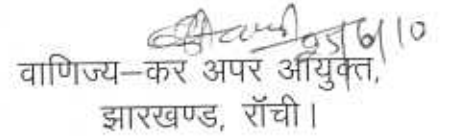 25/6/10
वाणिज्य–कर अपर आयुक्त,
झारखण्ड, राँची।